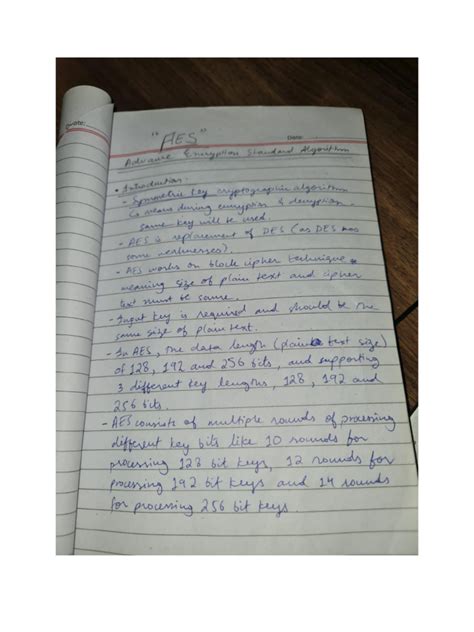 Quote:
Date:
"AES"
Advance Encryption Standard Algorithm
- Introduction:
- Symmetric key cryptographic algorithm
↳ means during encryption & decryption
same key will be used.
- AES is replacement of DES (as DES has
some weaknesses).
- AES works on block cipher technique
meaning size of plain text and cipher
text must be same.
- Input key is required and should be the
same size of plain text.
- In AES, the data length (plain text size)
of 128, 192 and 256 bits, and supporting
3 different key lengths, 128, 192 and
256 bits.
- AES consists of multiple rounds of processing
different key bits like 10 rounds for
processing 128 bit keys, 12 rounds for
processing 192 bit keys and 14 rounds
for processing 256 bit keys.